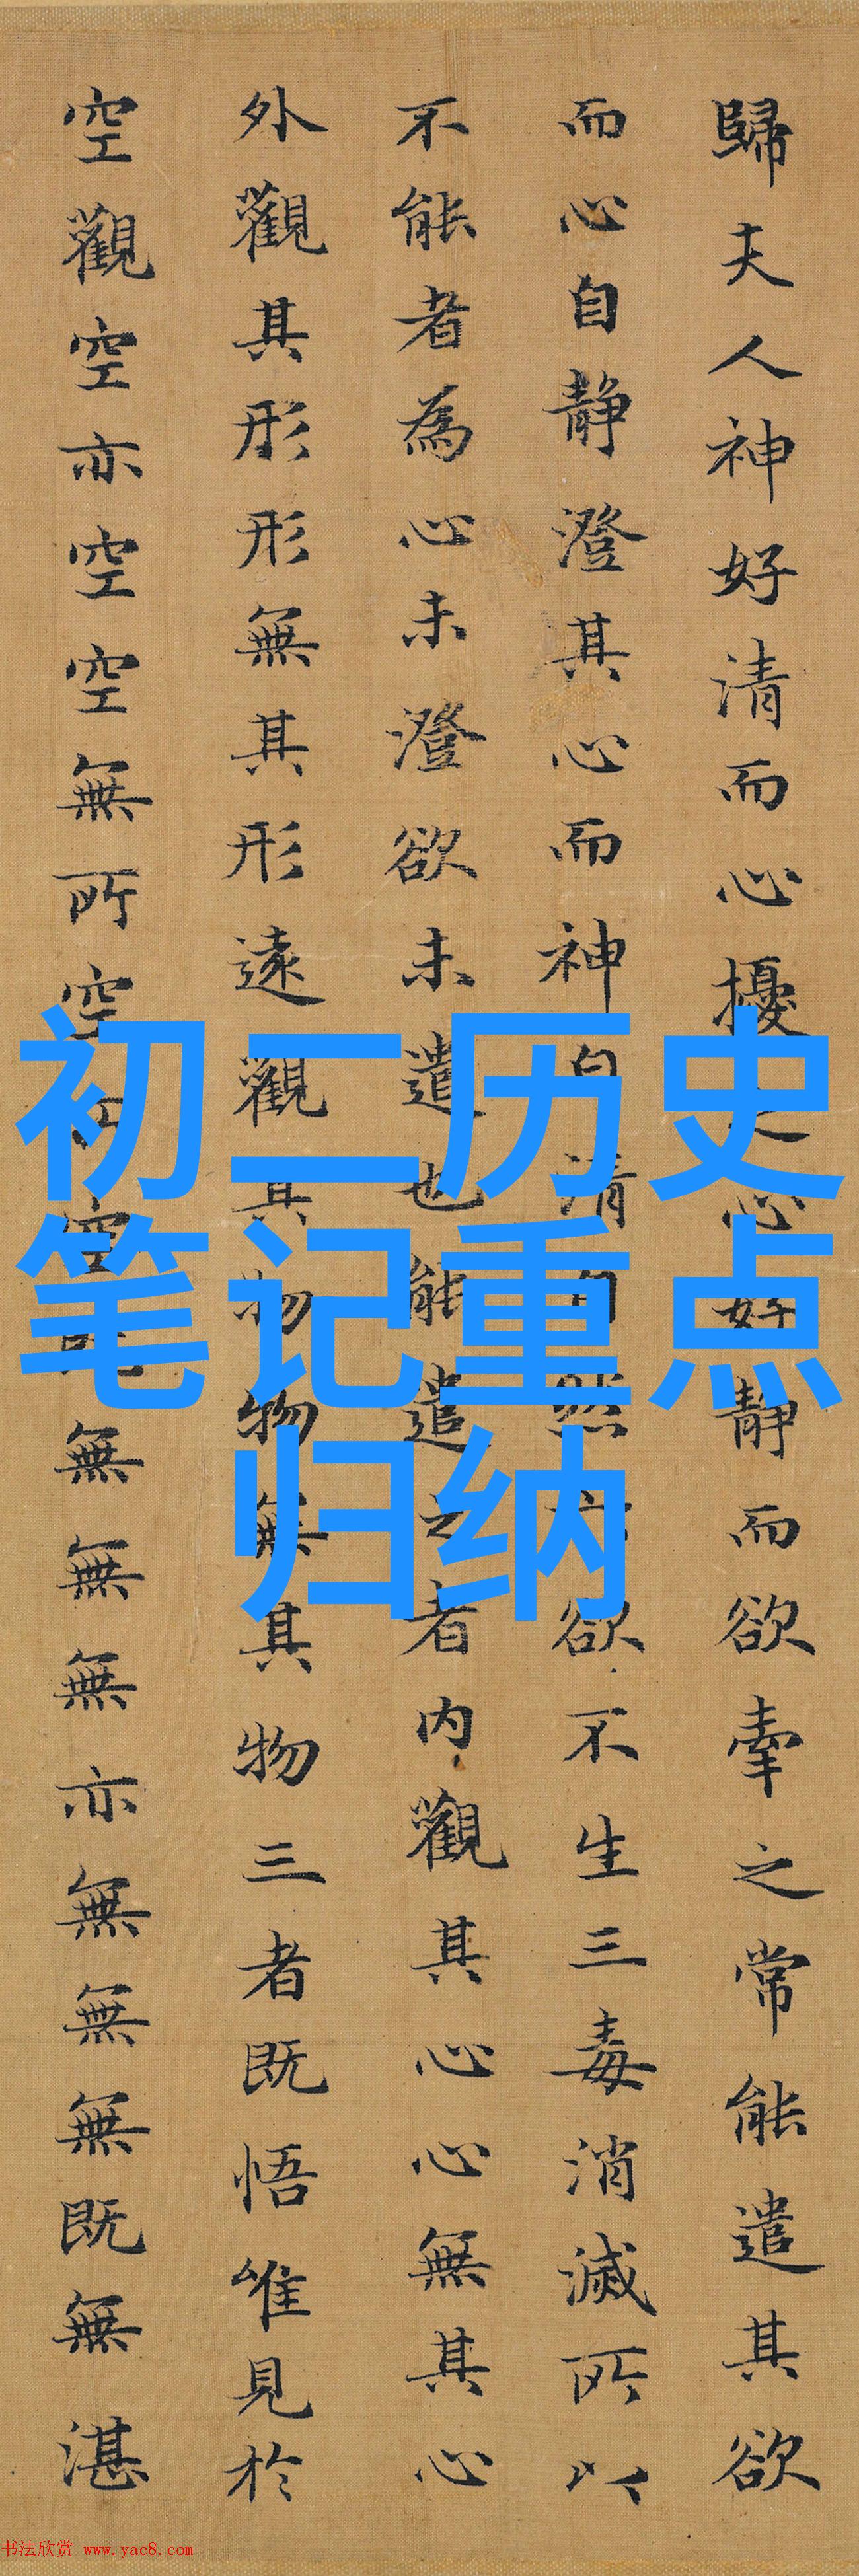 歸夫人神好清而心擾之心好静而欲牽之常能遣其欲
而心自静澄其心而神自清自然六欲不生三毒消滅所以
不能者為心未澄欲未遣也能遣之者内觀其心心無其心
外觀其形形無其形遠觀其物物無其物三者既悟唯見於
空觀空亦空空無所空所空既無無無亦無無無既無湛
初二历史
笔记重点
归纳
书法欣赏 www.yac8.com